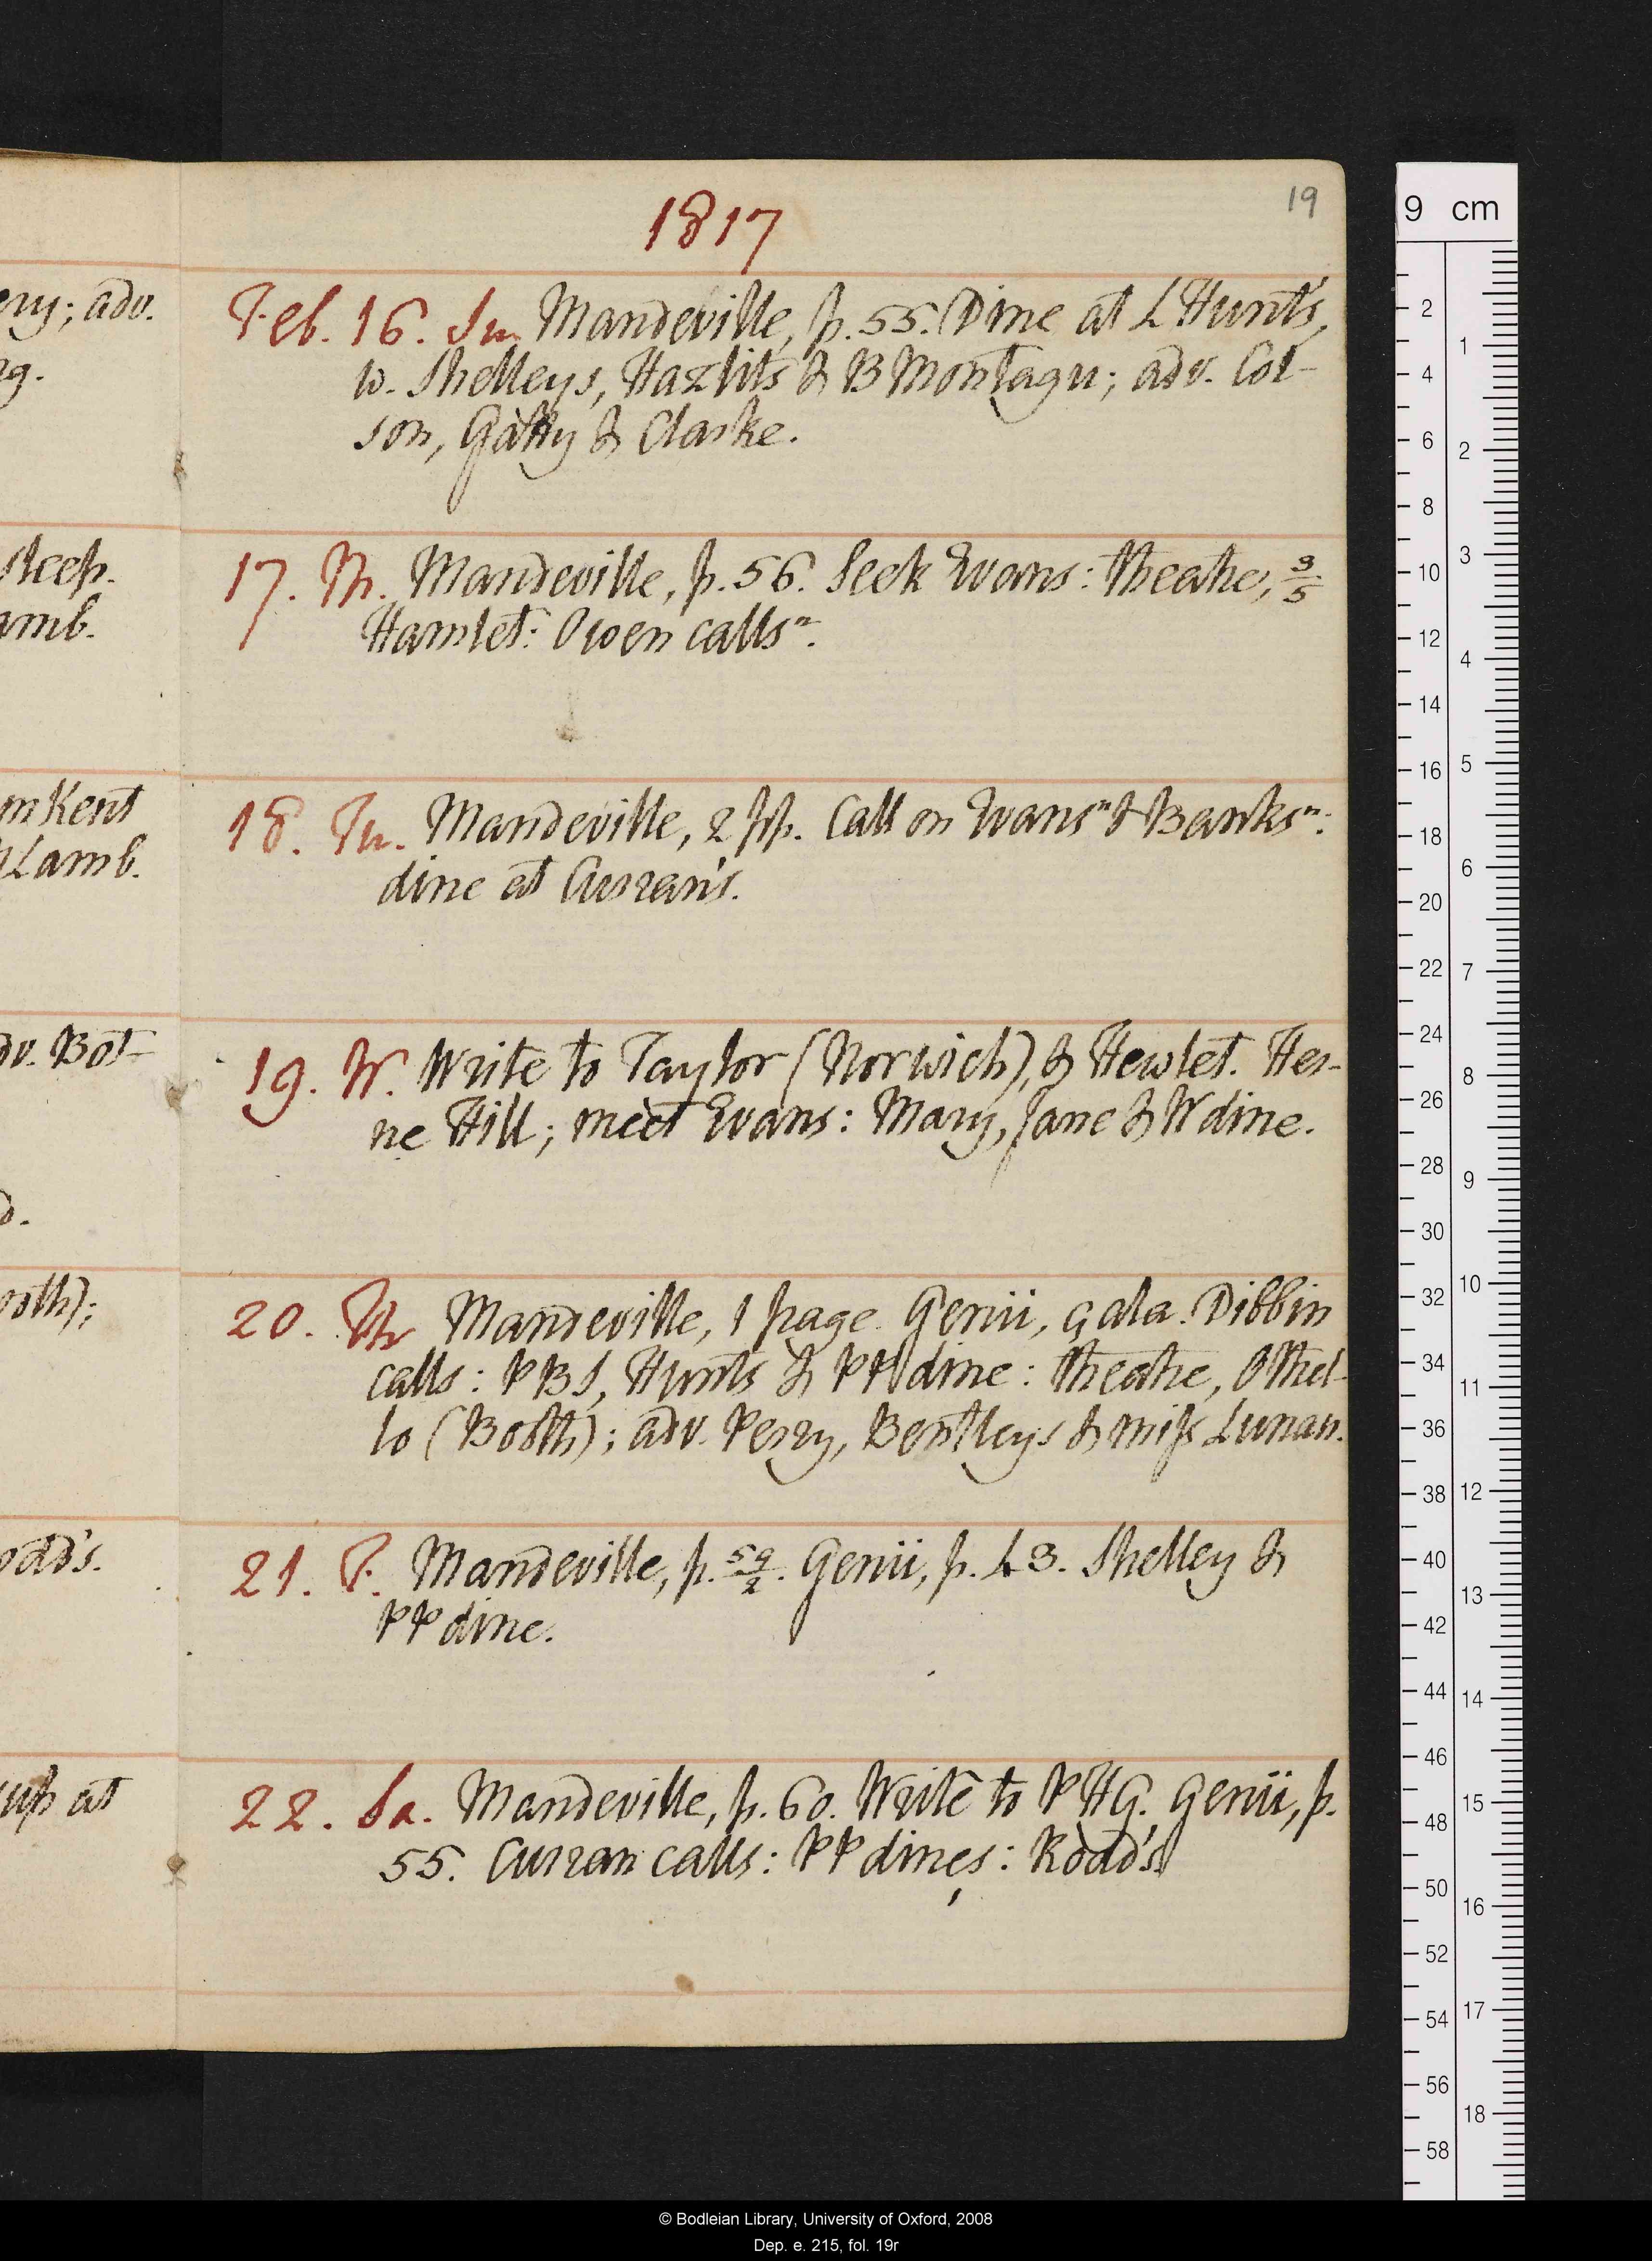 1817
19
Feb. 16. Su. Mandeville, p. 55. Dine at L Hunt's,
w. Shelleys, Hazlits & B Montagu; adv. Col-
son, Gatty & Clarke.
17. M. Mandeville, p. 56. Seek Evans: theatre, 3/5
Hamlet: Owen calls n.
18. Tu. Mandeville, 2 pp. Call on Evans n & Banks n:
dine at Curran's.
19. W. Write to Taylor (Norwich), & Hewlet. Her-
ne Hill; meet Evans: Mary, Jane & W dine.
20. Th. Mandeville, 1 page. Genii, çala. Dibbin
calls: PBS, Hunts & PP dine: theatre, Othel-
lo (Booth); adv. Perry, Bentleys & miss Lunan.
21. F. Mandeville, p. 59/2. Genii, p. 43. Shelley &
PP dine.
22. Sa. Mandeville, p. 60. Write to PHG. Genii, p.
55. Curran calls: PP dines: Rodd's.
ery; adv.
sleep.
amb.
m Kent
Lamb.
dv. Bot-
ooth);
odd's.
up at
9 cm
2 4 6 8 10 12 14 16 18 20 22 24 26 28 30 32 34 36 38 40 42 44 46 48 50 52 54 56 58
1 2 3 4 5 6 7 8 9 10 11 12 13 14 15 16 17 18
© Bodleian Library, University of Oxford, 2008
Dep. e. 215, fol. 19r